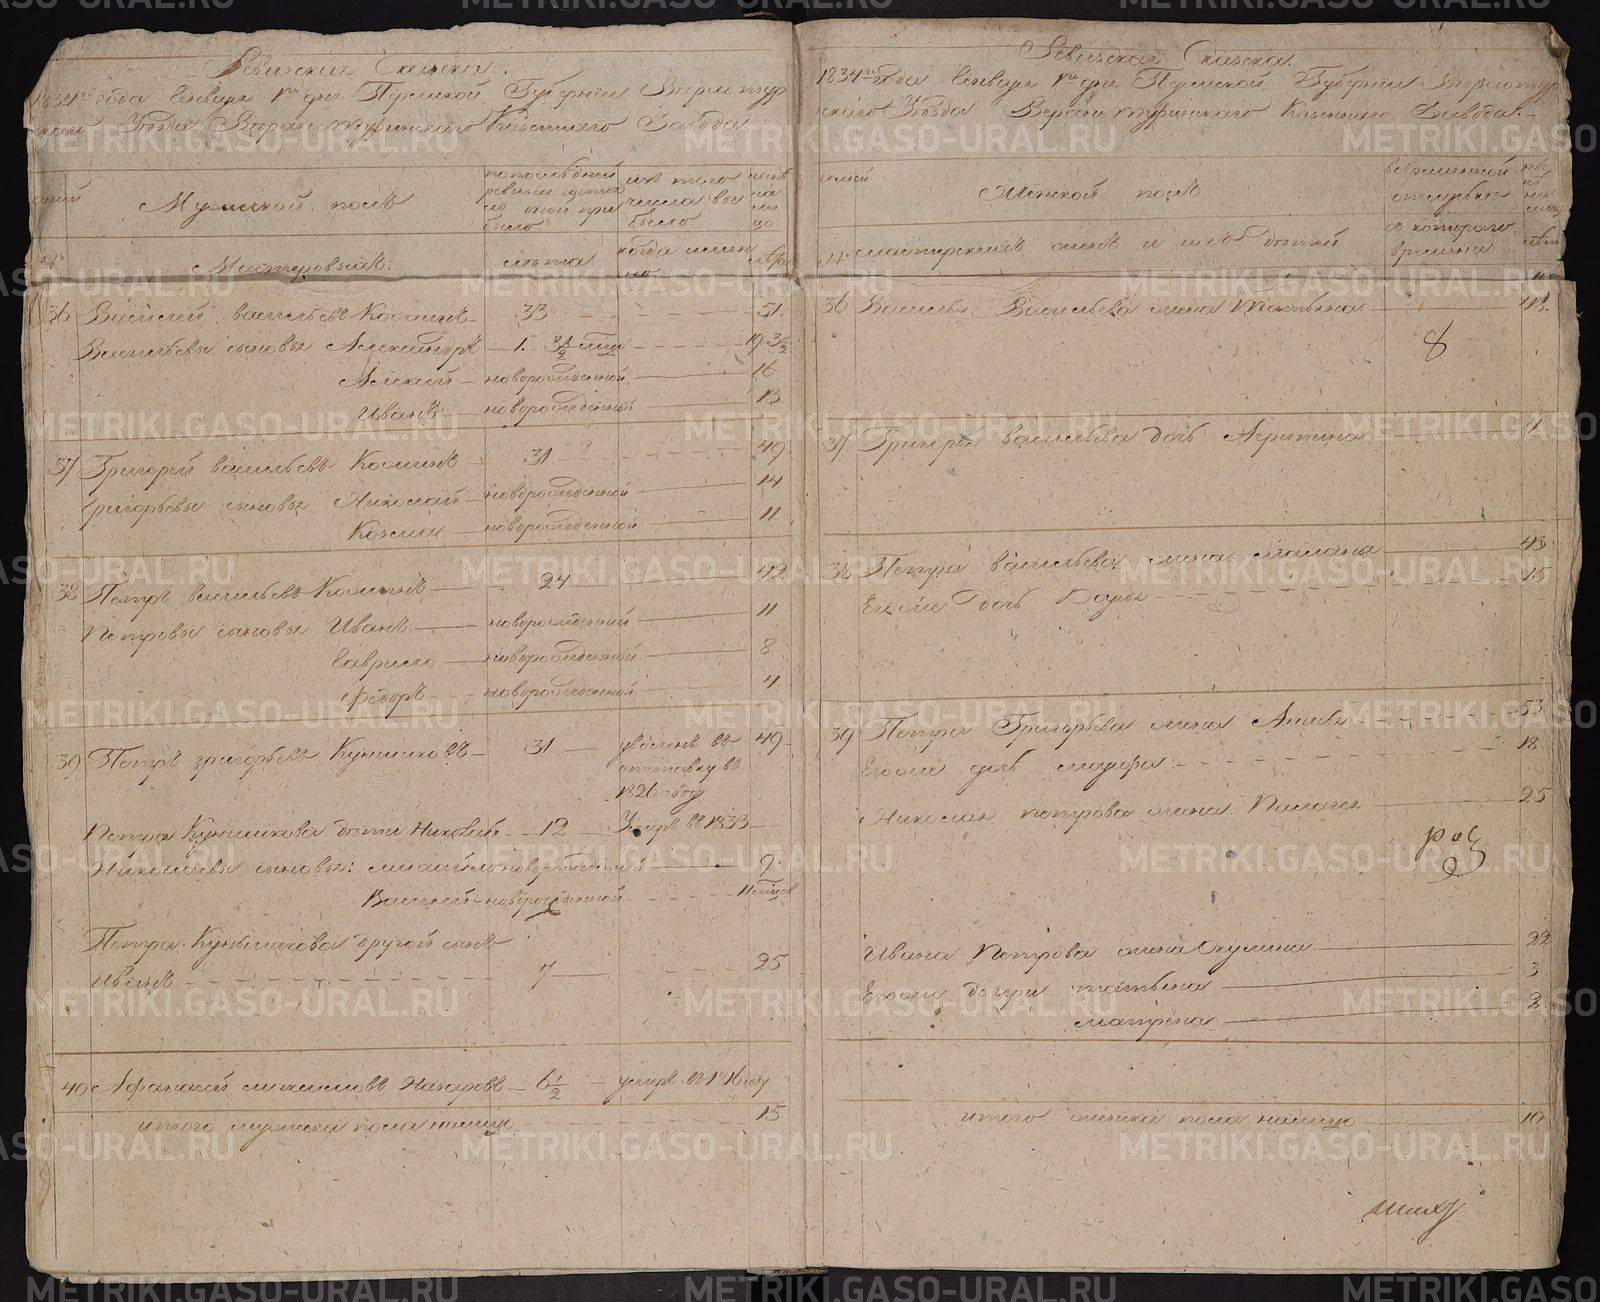 Ревизская Сказка.
1834го года Генваря 1го дня Пермской Губернии Верхотур
скаго Уѣзда Верхотуринскаго Казеннаго Завода
семей
Мужеской полъ
по последней ревизии состояло и оной прибыло
изъ того числа выбыло
нынѣ на лицо
№
Мастеровыхъ:
лѣта
когда именно
лѣта
36 Василей васильевъ Козминъ 33 51
Васильевы сыновья Александръ 1. 19
Алексей новорожденной 16
Иванъ новорожденной 13
37 Григорей васильевъ Козминъ 31 49
Григорьевы сыновья Николай новорожденной 14
Козма новорожденной 11
38 Петръ васильевъ Козминъ 24 42
Петровы сыновья Иванъ новорожденной 11
Гаврило новорожденной 8
Федоръ новорожденной 4
39 Петръ григорьевъ Куншиковъ 31 уволенъ въ 49
отставку въ
1826 году
Петра Куншикова дети Николай 12 Умеръ въ 1833
Николаевы сыновья: Михайло новорожденной 9
Василей новорожденной 11 месяцов
Петра Куншикова другой сынъ
Иванъ 7 25
40 Афанасей Назаровъ 6 1/2 умеръ въ 1816 году
итого мужеска пола налицо 15
Ревизская Сказка.
1834го года Генваря 1го дня Пермской Губернии Верхотур
скаго Уѣзда Верхотуринскаго Казеннаго Завода.
семей
Женской полъ
во временной отлучке
нынѣ на лицо
№ мастерскихъ женъ и ихъ дѣтей
съ котораго времени
лѣта
36 Василья Васильева жена Татьяна 48
8
37 Григорья васильева дочь Агрипина
38 Петра васильева жена Маланья 43
Егоже дочь Дарья 15
39 Петра Григорьева жена Анна 53
Егоже дочь 18
Николая петрова жена Палагея 25
Ивана Петрова жена Окулина 22
Егоже дочери татьяна 3
матрена 2
итого женска пола налицо 10